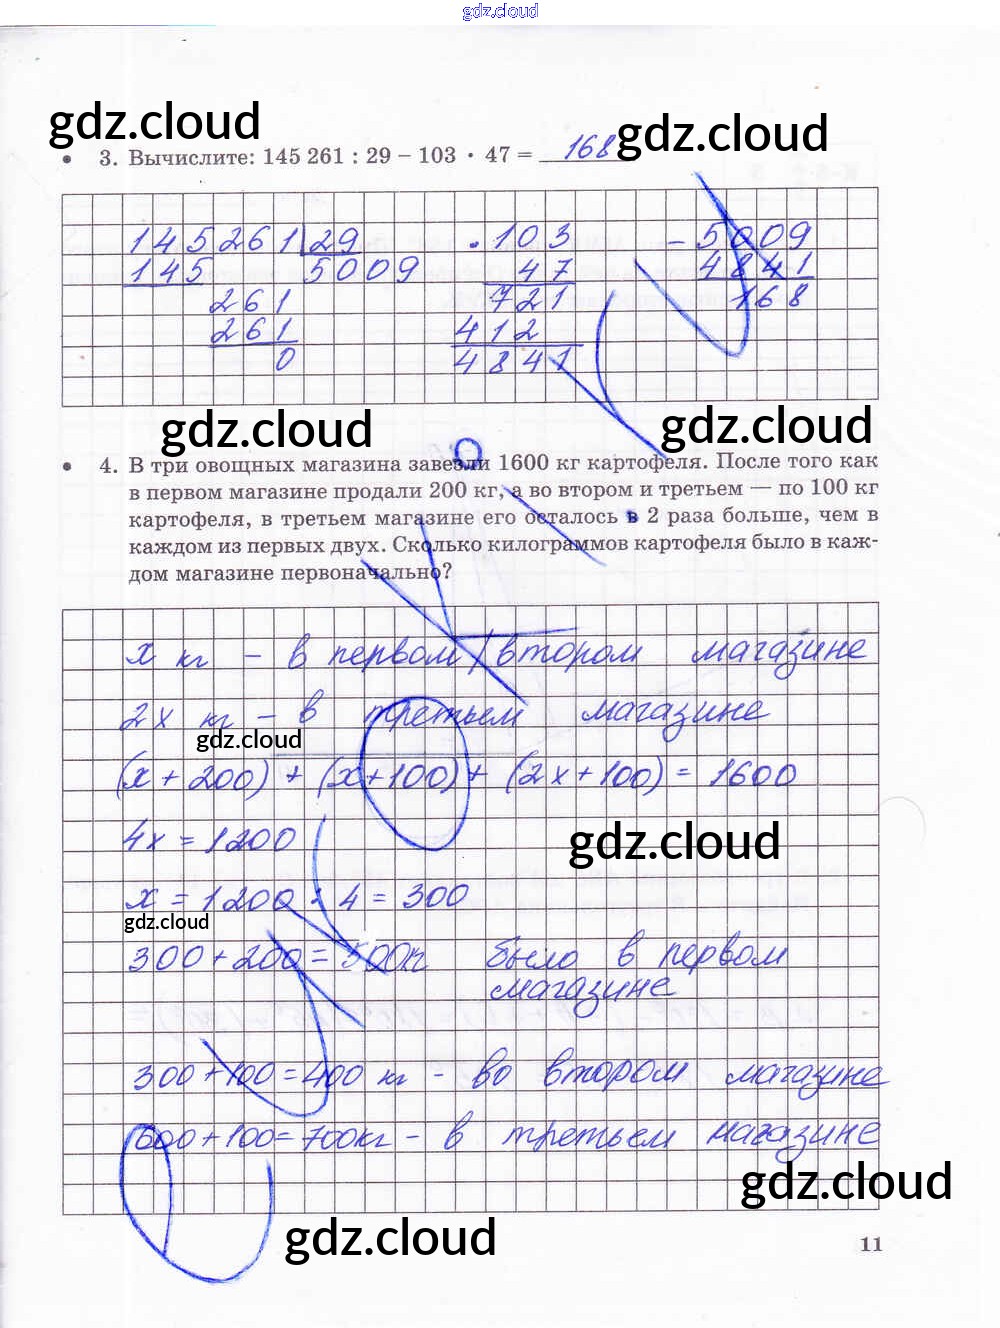 gdz.cloud
gdz.cloud
gdz.cloud
• 3. Вычислите: 145 261 : 29 – 103 · 47 = 168
145261 29 · 103 – 5009
145 5009 47 4841
261 721 168
261 412
0 4841
gdz.cloud
gdz.cloud
• 4. В три овощных магазина завезли 1600 кг картофеля. После того как
в первом магазине продали 200 кг, а во втором и третьем — по 100 кг
картофеля, в третьем магазине его осталось в 2 раза больше, чем в
каждом из первых двух. Сколько килограммов картофеля было в каж-
дом магазине первоначально?
x кг – в первом / втором магазине
2x кг – в третьем магазине
gdz.cloud
(x + 200) + (x + 100) + (2x + 100) = 1600
4x = 1200
gdz.cloud
x = 1200 : 4 = 300
gdz.cloud
300 + 200 = 500кг было в первом
магазине
300 + 100 = 400 кг - во втором магазине
600 + 100 = 700кг – в третьем магазине
gdz.cloud
gdz.cloud
11